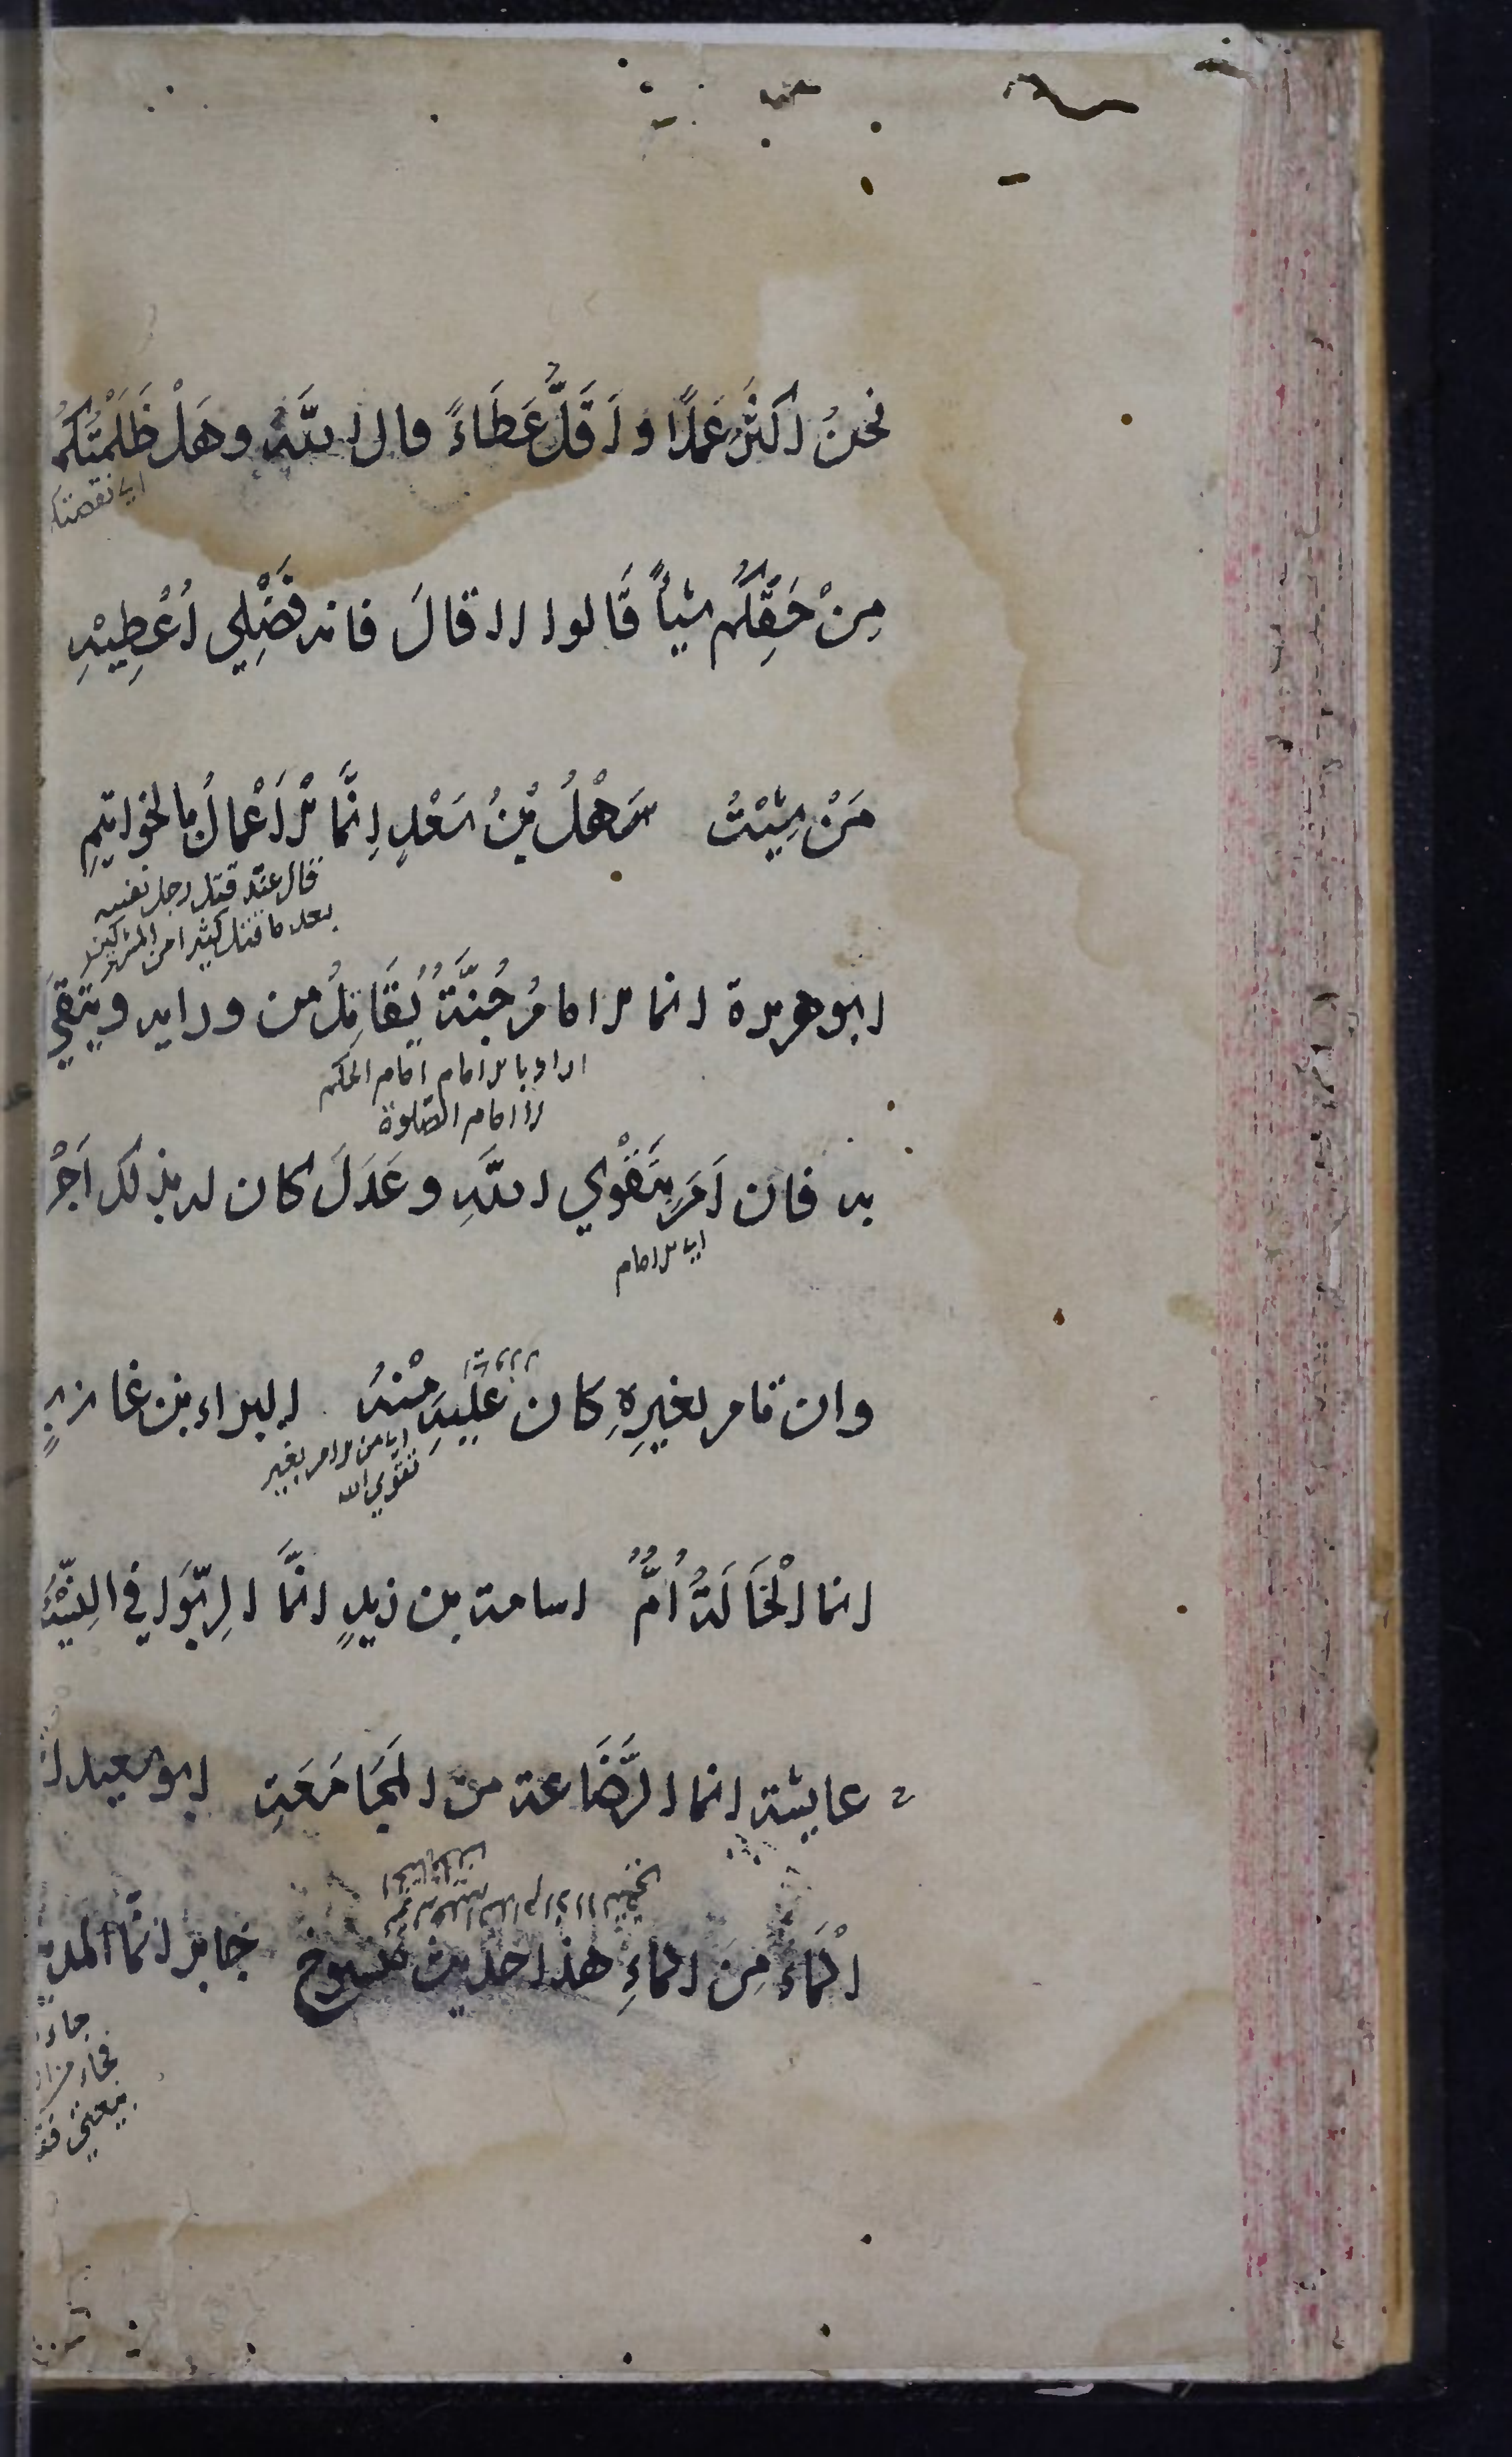 نحنُ اكثرُ عَمَلًا و اَقَلُّ عَطَاءً قال اللّٰهُ وهَلْ ظَلَمْتُكُمْ
اي نقصتكم
مِنْ حَقِّكُم شيأً قَالوا لا قالَ فانه فَضْلِي اُعْطِيْهِ
مَنْ شِئْتُ سَهْلُ بْنُ سَعْدٍ اِنَّمَا الْاَعْمالُ بالخواتيمِ
قال عند قتل رجل نفسه
بعد ما قتل كثيرا من المشركين
ابو هريرة انما الامامُ جُنَّةٌ يُقَاتِلُ من ورايه ويُتَّقَي
اراد بالامام امام الحكم
لا امام الصّلوة
به فان اَمَرَ بِتَقْوَي اللّٰهِ وعَدَلَ كان له بذلك اَجْرٌ
اي الامام
وان يامر بغيرِهِ كان عَلَيهِ مِنْهُ البراء بن عازبٍ
اي من الامر بغير
تقوي الله
انما الْخَالَةُ اُمٌّ اسامة بن زيدٍ انَّمَا الرِّبَوا في النَّسِيْئَةِ
عايشة انما الرَّضَاعة من المَجَاعَةِ ابو سعيد
الْمَاءُ مِنَ الماءِ هذا حديث منسوخ جابر انّما المدينة
جاء
فجاء
يعني